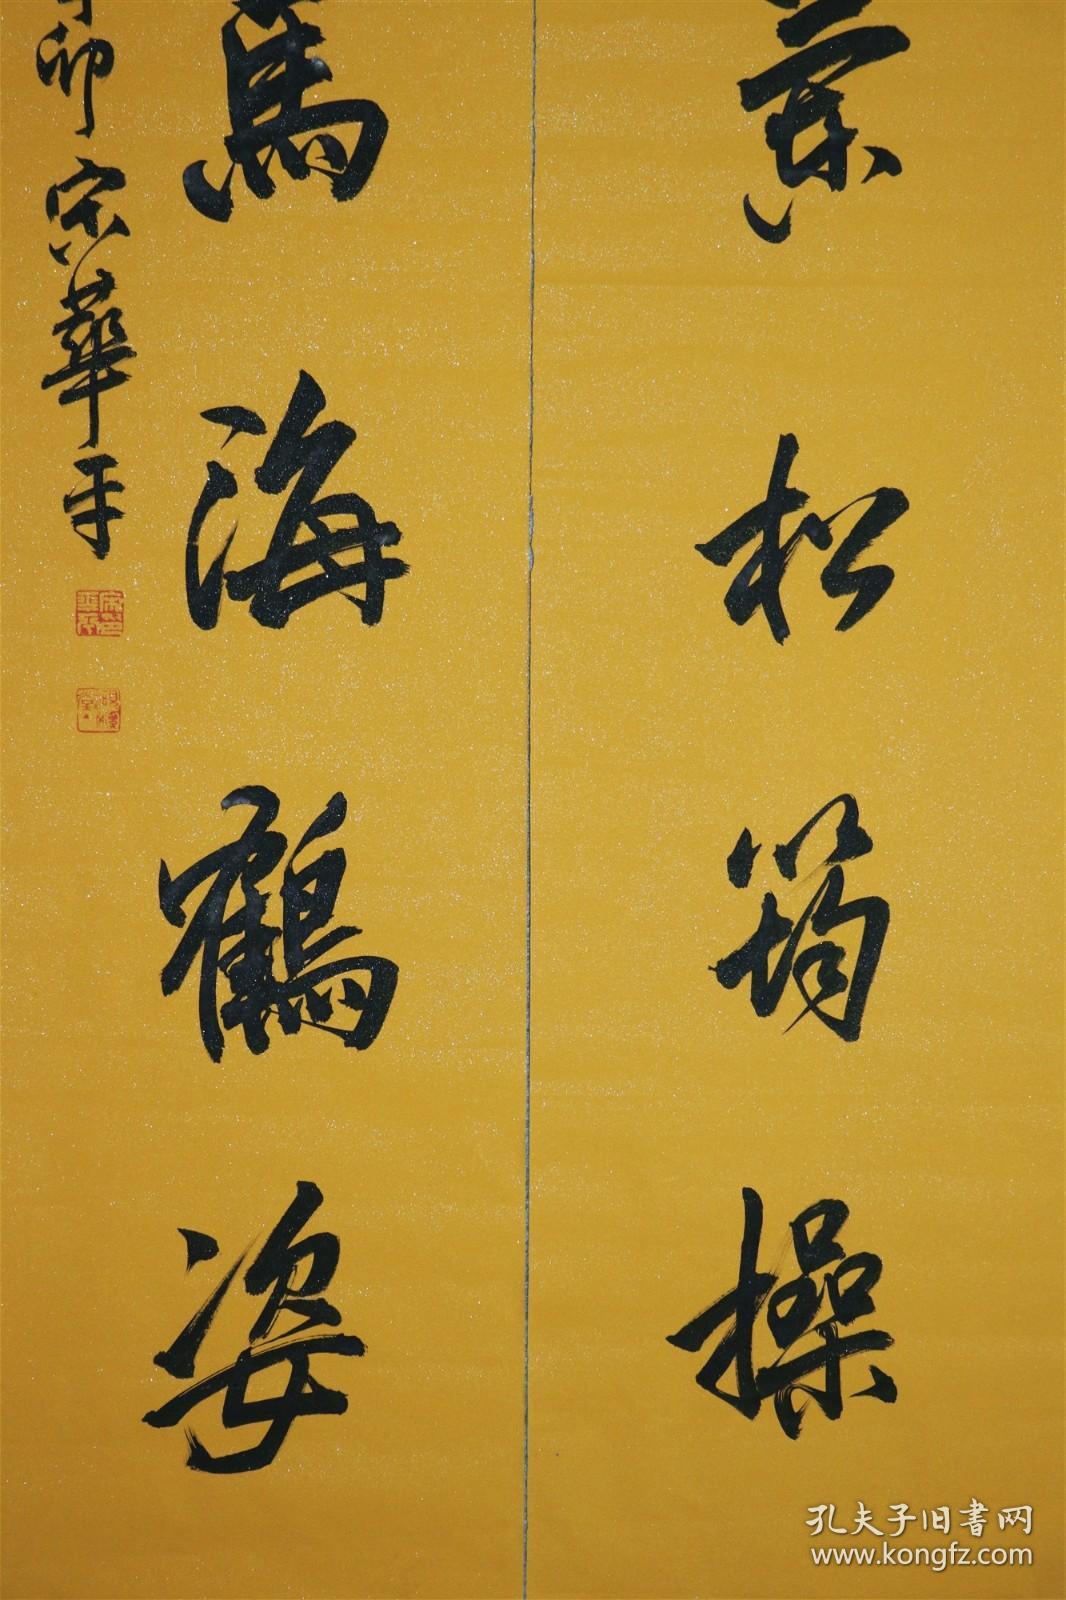 松筠操
海鶴姿
卯宋華平
孔夫子旧書网
www.kongfz.com